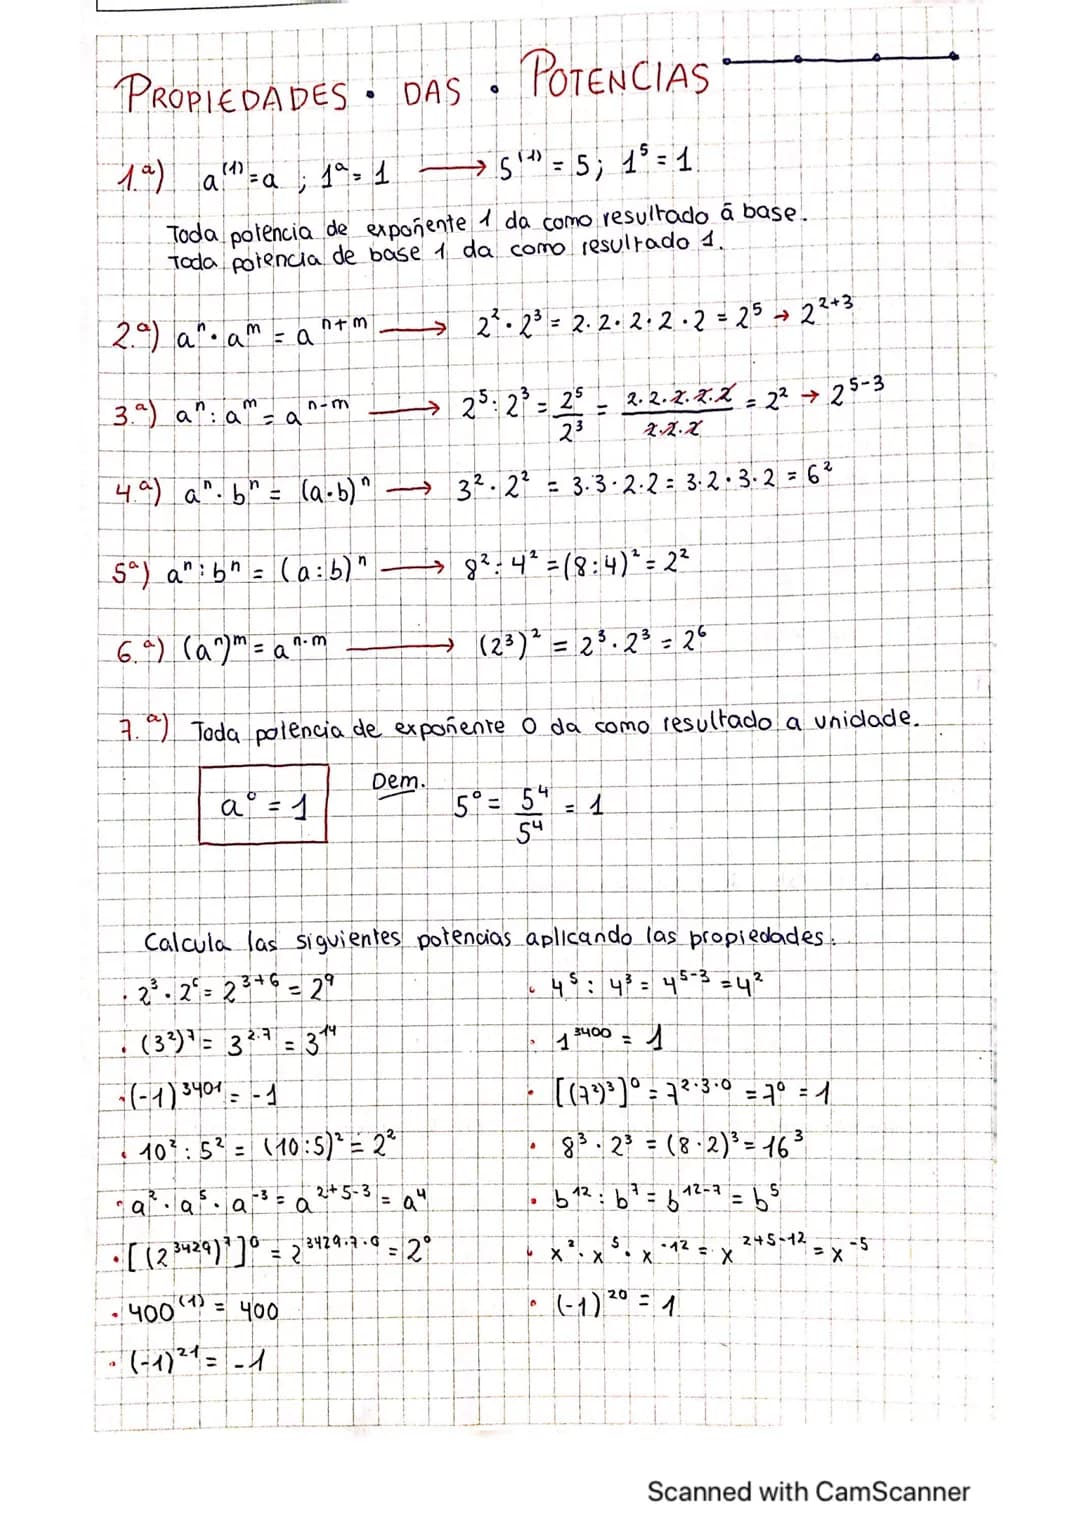 PROPIEDADES · DAS · POTENCIAS
1.ª) a⁽¹⁾=a ; 1ᵃ= 1 ⟶ 5⁽¹⁾ = 5; 1⁵ = 1
Toda potencia de expoñente 1 da como resultado á base.
Toda potencia de base 1 da como resultado 1.
2.ª) aⁿ · aᵐ = aⁿ⁺ᵐ ⟶ 2² · 2³ = 2. 2 · 2 · 2 · 2 = 2⁵ → 2²⁺³
3.ª) aⁿ : aᵐ = aⁿ⁻ᵐ ⟶ 2⁵ : 2³ = 2⁵/2³ = 2·2·2·2·2/2·2·2 = 2² → 2⁵⁻³
4ª) aⁿ · bⁿ = (a·b)ⁿ ⟶ 3² · 2² = 3·3·2·2 = 3·2·3·2 = 6²
5ª) aⁿ : bⁿ = (a:b)ⁿ ⟶ 8² : 4² = (8:4)² = 2²
6.ª) (aⁿ)ᵐ = aⁿ·ᵐ ⟶ (2³)² = 2³ · 2³ = 2⁶
7.ª) Toda potencia de expoñente 0 da como resultado a unidade.
a⁰ = 1 Dem. 5⁰ = 5⁴/5⁴ = 1
Calcula las siguientes potencias aplicando las propiedades:
· 2³ · 2⁶ = 2³⁺⁶ = 2⁹
· 4⁵ : 4³ = 4⁵⁻³ = 4²
· (3²)⁷ = 3²·⁷ = 3¹⁴
· 1³⁴⁰⁰ = 1
· (-1)³⁴⁰¹ = -1
· [(7²)³]⁰ = 7²·³·⁰ = 7⁰ = 1
· 10² : 5² = (10:5)² = 2²
· 8³ · 2³ = (8·2)³ = 16³
· a² · a⁵ · a⁻³ = a²⁺⁵⁻³ = a⁴
· b¹² : b⁷ = b¹²⁻⁷ = b⁵
· [(2³⁴²⁹)⁷]⁰ = 2³⁴²⁹·⁷·⁰ = 2⁰
· x² · x⁵ · x⁻¹² = x²⁺⁵⁻¹² = x⁻⁵
· 400⁽¹⁾ = 400
· (-1)²⁰ = 1
· (-1)²¹ = -1
Scanned with CamScanner